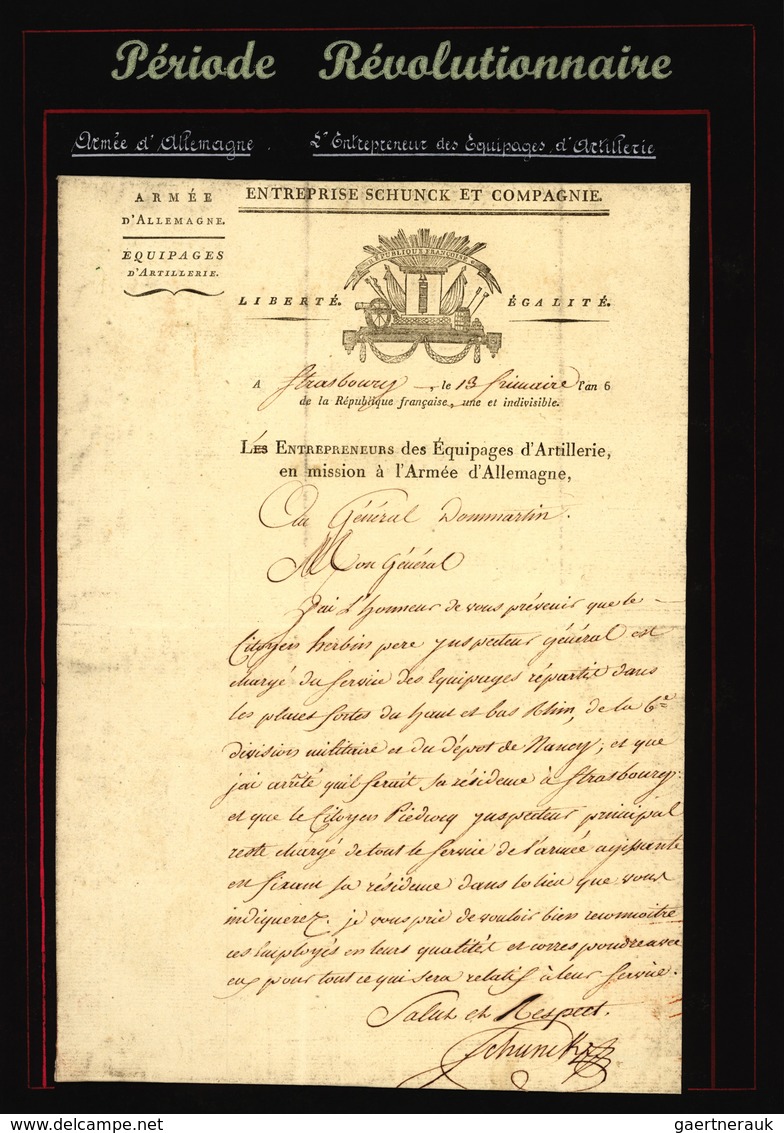 Période Révolutionnaire
Armée d'Allemagne. L'Entrepreneur des Equipages d'Artillerie
ARMÉE
D'ALLEMAGNE.
ÉQUIPAGES
D'ARTILLERIE.
ENTREPRISE SCHUNCK ET COMPAGNIE.
RÉPUBLIQUE FRANÇOISE
LIBERTÉ. ÉGALITÉ.
A Strasbourg, le 13 frimaire l'an 6
de la République française, une et indivisible.
LES ENTREPRENEURS des Équipages d'Artillerie,
en mission à l'Armée d'Allemagne,
Au Général Dommartin.
Mon Général
J'ai l'honneur de vous prévenir que le
Citoyen herbin pere ynspecteur général est
chargé du service des Equipages répartis dans
les places fortes du haut et bas Rhin, de la 6e
division militaire et du dépot de Nancy, et que
j'ai arrêté qu'il ferait sa résidence à Strasbourg;
et que le Citoyen Piédvocq ynspecteur principal
reste chargé de tout le service de l'armée agissante
en fixant sa résidence dans le lieu que vous
indiquerez. je vous prie de vouloir bien reconnoitre
ces Employés en leurs qualités et correspondre avec
eux pour tout ce qui sera relatif à leur service.
Salut et Respect.
Schunck
delcampe.net
gaertnerauk